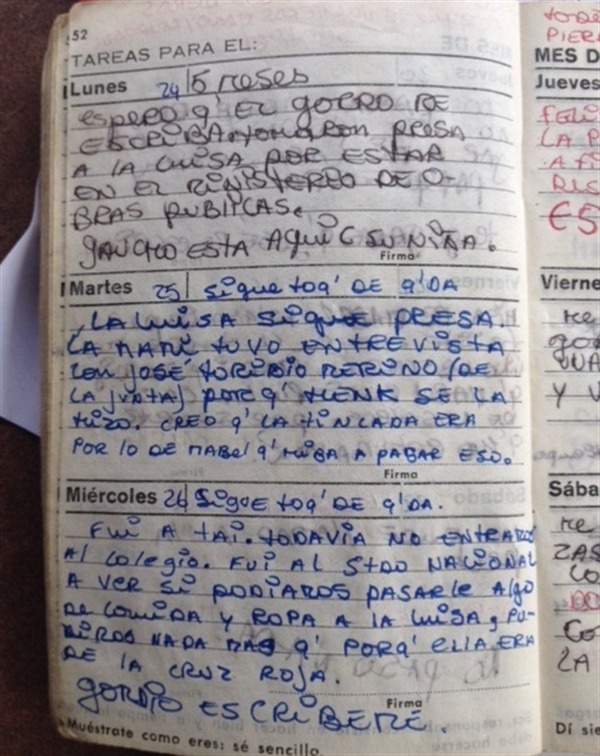 52
TAREAS PARA EL:
Lunes 24 5 MESES
ESPERO Q' EL GORRO ME
ESCRIBA. TOMARON PRESA
A LA LUISA POR ESTAR
EN EL MINISTERIO DE O-
BRAS PUBLICAS.
GAUCHO ESTA AQUI C SU NIÑA.
Firma
Martes 25 SIGUE TOQ' DE Q'DA
LA LUISA SIGUE PRESA.
LA MAMI TUVO ENTREVISTA
CON JOSÉ TORIBIO MERINO (DE
LA JUNTA) PORQ' HENK SE LA
HIZO. CREO Q' LA TINCADA ERA
POR LO DE MABEL Q' HIBA A PAGAR ESO.
Firma
Miércoles 26 SIGUE TOQ' DE Q'DA.
FUI A TAI. TODAVIA NO ENTRAMOS
AL COLEGIO. FUI AL STDO NACIONAL
A VER SI PODIAMOS PASARLE ALGO
DE COMIDA Y ROPA A LA LUISA, PU-
DIMOS NADA MAS Q' PORQ' ELLA ERA
DE LA CRUZ ROJA.
GORDIO ESCRIBEME.
Firma
Muéstrate como eres: sé sencillo.
MES D
Jueves
FELI
LA P
A FI
ES
Vierne
ME
GO
Y V
Sába
ME
ZAS
CO
DO
CO
LA
Di sie